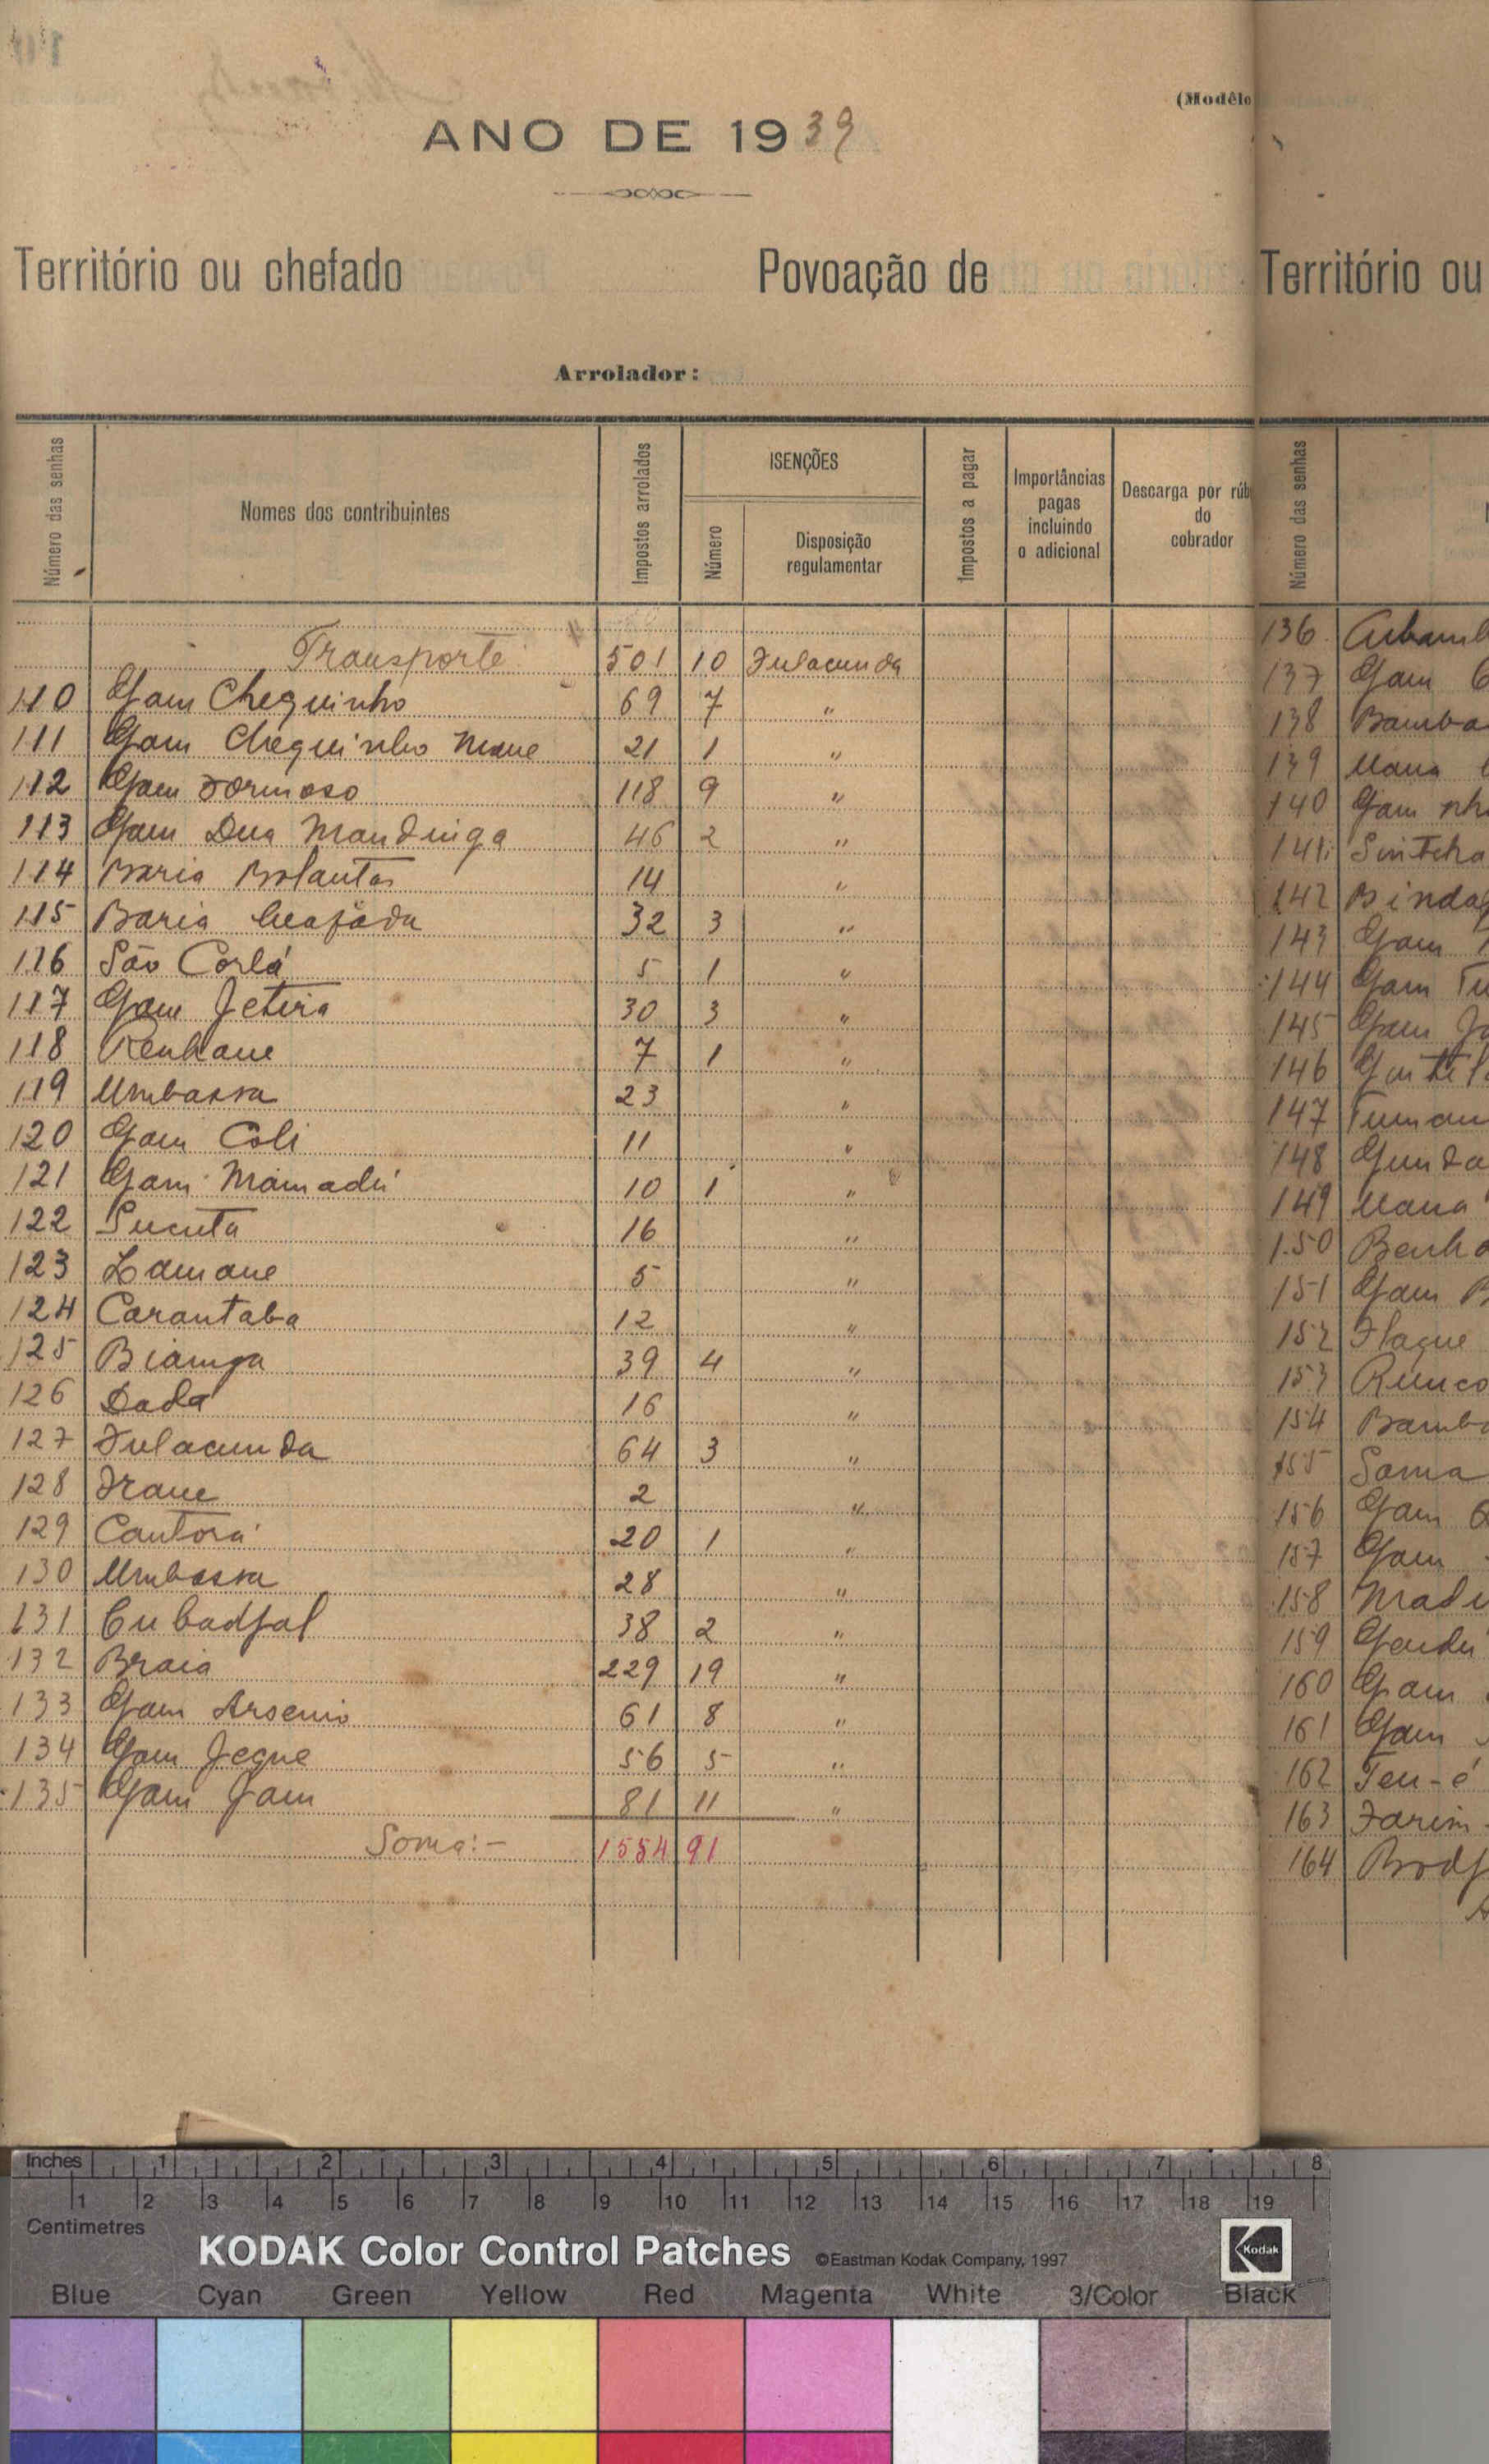 (Modêlo
ANO DE 1939
Território ou chefado Povoação de
Arrolador:
Número das senhas Nomes dos contribuintes Impostos arrolados ISENÇÕES Número Disposição regulamentar Impostos a pagar Importâncias pagas incluindo o adicional Descarga por rúb do cobrador
Transporte 501 10 Fulacunda
110 Gam Chequinho 69 7 "
111 Gam Chequinho Mane 21 1 "
112 Gam Formoso 118 9 "
113 Gam Dua Mandinga 46 2 "
114 Baria Balantas 14 "
115 Baria Beafada 32 3 "
116 São Corlá 5 1 "
117 Gam Jetira 30 3 "
118 Renhane 7 1 "
119 Umbassa 23 "
120 Gam Coli 11 "
121 Gam Mamadú 10 1 "
122 Sucuta 16 "
123 Lamane 5 "
124 Carantaba 12 "
125 Bianga 39 4 "
126 Dada 16 "
127 Fulacunda 64 3 "
128 Frane 2 "
129 Cantorá 20 1 "
130 Umbassa 28 "
131 Cubadjal 38 2 "
132 Braia 229 19 "
133 Gam Arsenio 61 8 "
134 Gam Jeque 56 5 "
135 Gam Gam 81 11 "
Soma:- 1554 91
Território ou
Número das senhas
136
137 Gam
138 Bamba
139 Uana
140 Gam
141 Sintcha
142 Binda
143 Gam
144 Gam Tu
145 Gam
146
147 Tuman
148 Gunda
149 Uana
150 Benha
151 Gam B
152 Flaque
153 Runco
154 Bamba
155 Sama
156 Gam
157 Gam
158 Madi
159 Gandu
160 Gam
161 Gam
162 Teu-é
163 Farim
164 Brodj
Inches 1 2 3 4 5 6 7 8
1 2 3 4 5 6 7 8 9 10 11 12 13 14 15 16 17 18 19
Centimetres
KODAK Color Control Patches ©Eastman Kodak Company, 1997 Kodak
Blue Cyan Green Yellow Red Magenta White 3/Color Black